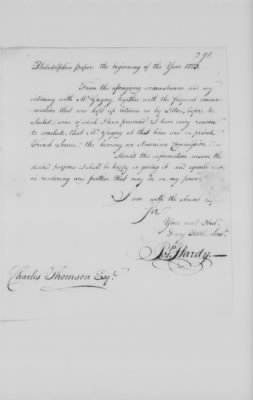 291
Philadelphia paper the beginning of the Year 1778.
From the foregoing circumstances and my
intimacy with Mr. Gregory, together with the frequent commu-
nication that was kept up between us by Letter, before he
Sailed, some of which I have preserved, I have every reason
to conclude, that Mr. Gregory at that time was in private
French Service tho' having an American Commission.
Should this information answer the
desired purpose, I shall be happy in giving it, and equally so
in rendering any further that may be in my power.
I am with the utmost
Sir
Your most Obed.
& very Hble. Servt.
Jos. Hardy
Charles Thomson Esqr.